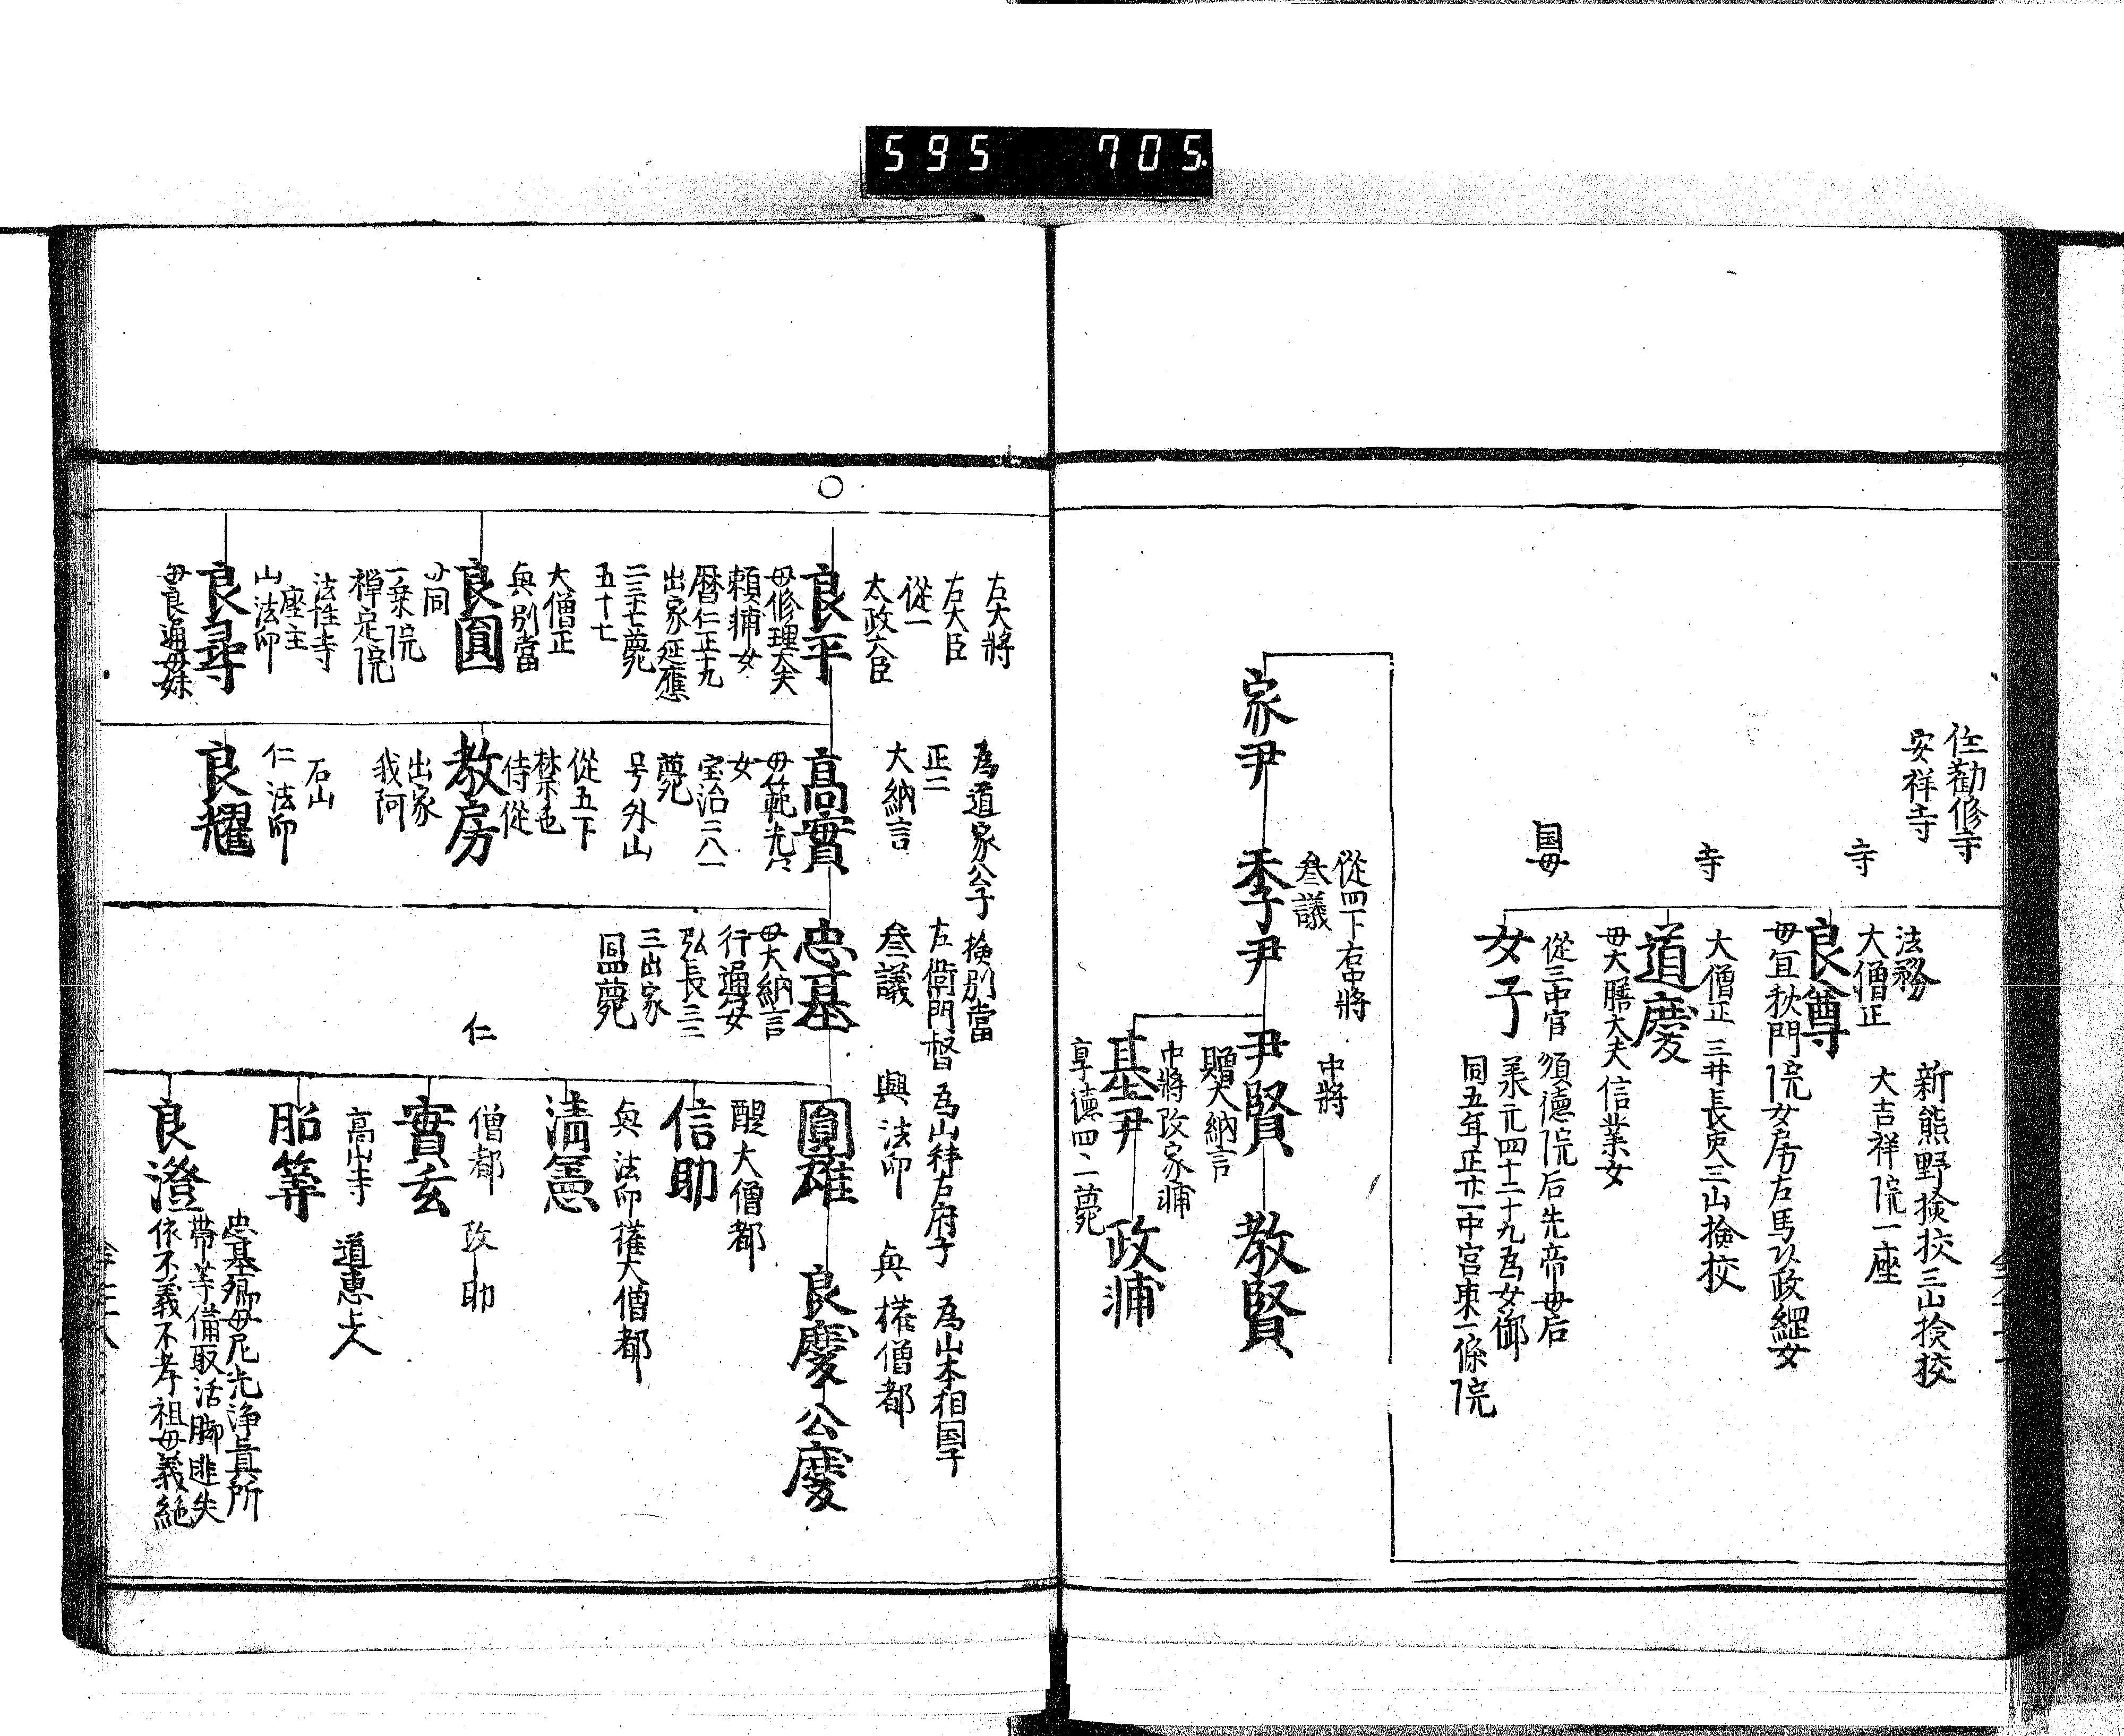 595 705.
住勧修寺
安祥寺
法務
大僧正
新熊野検校三山検校
大吉祥院一座
寺
良尊
母宜秋門院女房右馬以政縄女
寺
大僧正 三井長吏三山検校
道慶
母大膳大夫信業女
国母
從三中宮 須徳院后先帝母后
承元四十二十九為女御
同五年正廿一中宮東一條院
女子
家尹
從四下右中將
叅議
季尹
中將
尹賢
贈大納言
教賢
中將改家輔
基尹
享徳四二薨
政輔
右大將
左大臣
從一
太政大臣
良平
母修理大夫
頼輔女
暦仁正十九
出家延應
二三十七薨
五十七
大僧正
與別當
良圓
山同
一乗院
禅定院
法性寺
座主
山法印
良尋
母良通母妹
為道家公子
正二
大納言
高實
母範光公
女
宝治二八一
薨
号外山
從五下
禁色
侍從
教房
出家
我阿
石山
仁法印
良耀
検別當
左衛門督
叅議
忠基
母大納言
行通女
弘長三二
三出家
同四薨
為山科右府子
興法印
圓雄
為山本相国子
與権僧都
良慶
公慶
醍大僧都
信助
與法印権大僧都
清憲
仁
僧都 改助
實玄
高山寺 道恵上人
昭等
良澄
忠基卿母尼光浄眞所
帯等備取活脚匪失
依不義不孝祖母義絶